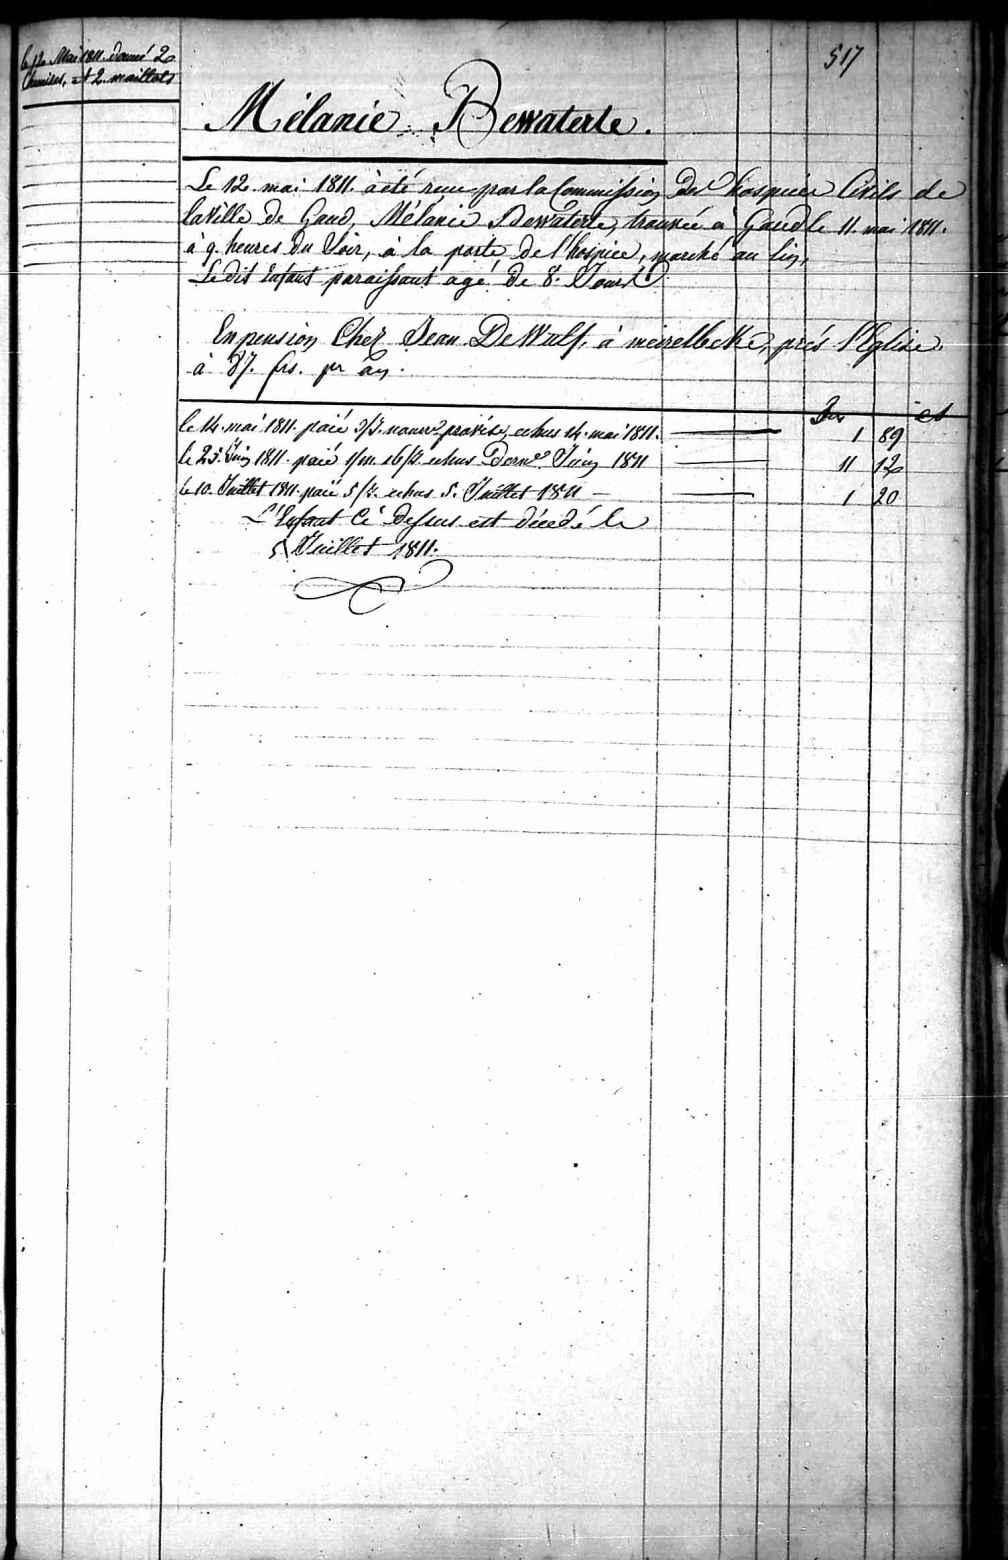 le 12 Mai 1811. donné 2
Chemises, et 2. maillots
517
Mélanie Dewaterte.
Le 12. mai 1811. à été reçu par la Commission Des hospices Civils de
la Ville de Gand, Mélanie Dewaterte, trouvée à Gand le 11. mai 1811.
à 9. heures Du Soir, à la porte De l'hospice, marché au lin,
Le dit Enfant paraissant agé De 8. Jours
En pension Chez Jean De Wulf, à meirelbeke, prés l'Eglise.
à 87. frs. pr an.
frs ct
le 14. mai 1811. paié 3/J. nourre provisre echus 14. mai 1811. 1 89
le 23. Juin 1811. paié 1/m. 16/J. echus Dernr Juin 1811 11 12
le 10. Juillet 1811 paié 5/J. echus 5. Juillet 1811 1 20
L'Enfant Ci Dessus est décedé le
5 Juillet 1811.